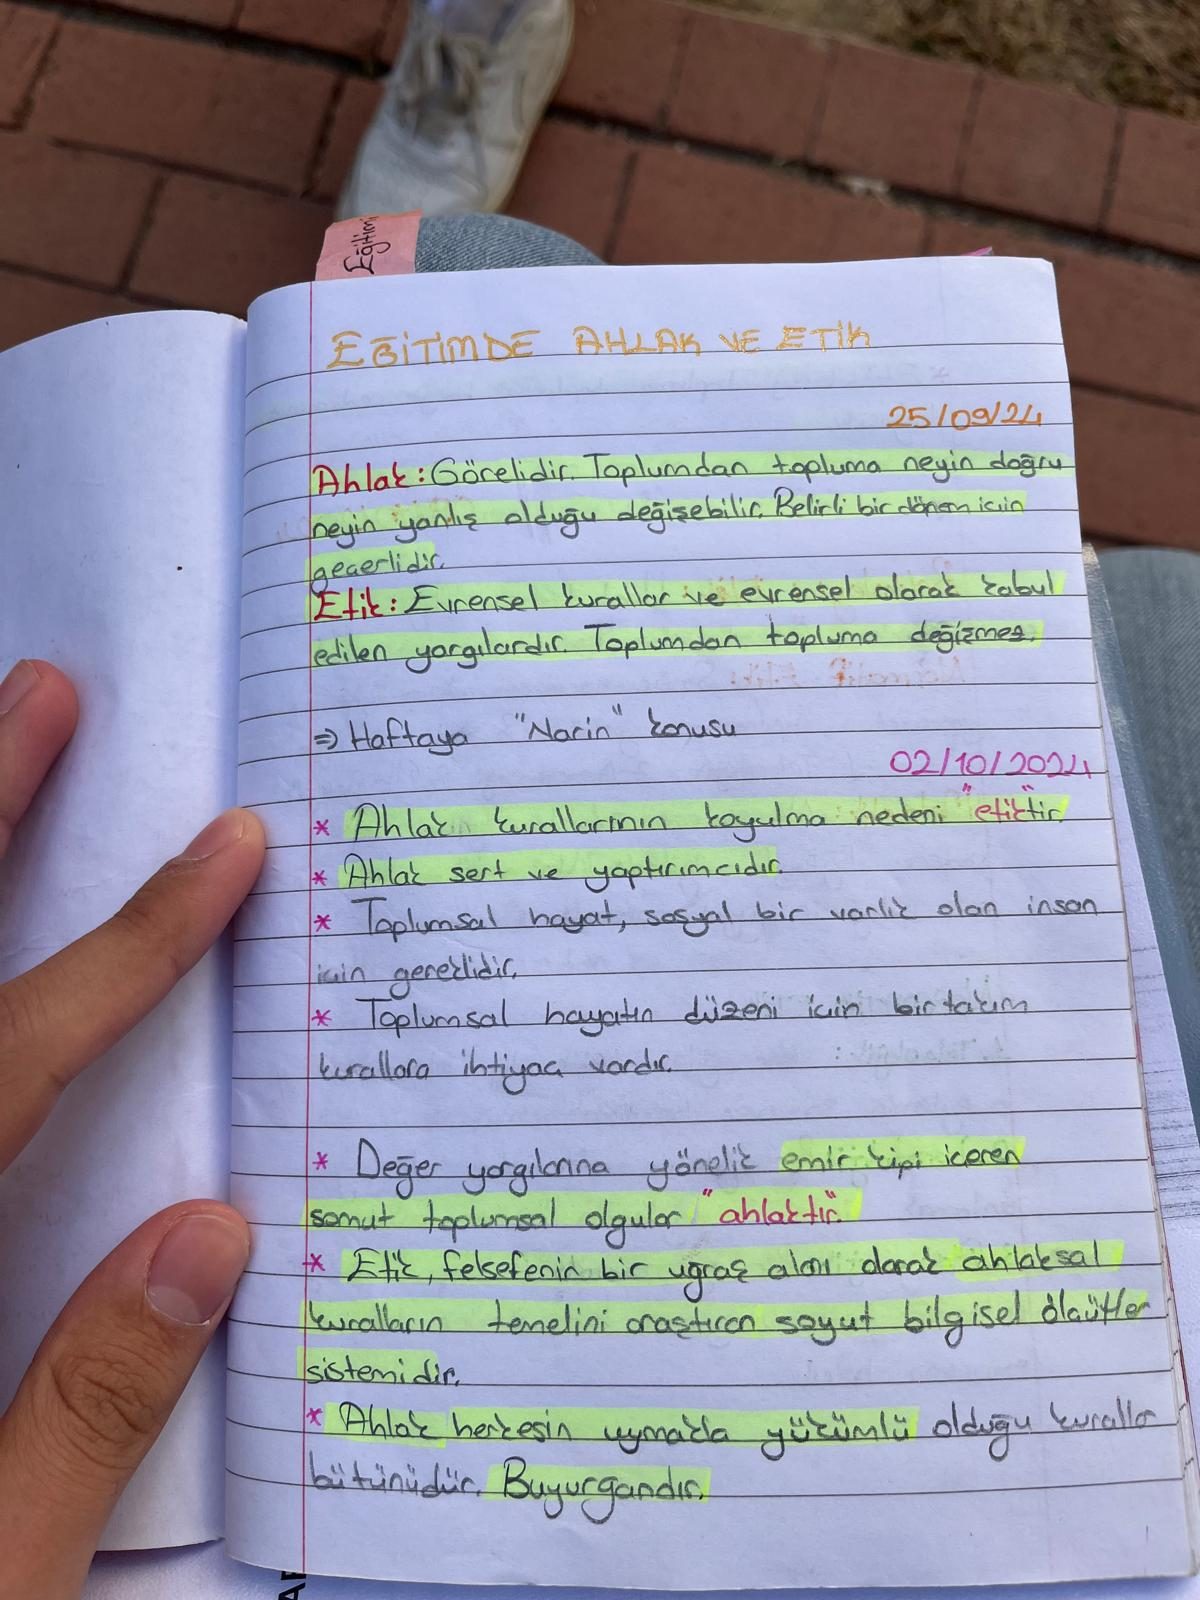 Eğitim
EĞİTİMDE AHLAK VE ETİK
25/09/24
Ahlak: Görelidir. Toplumdan topluma neyin doğru
neyin yanlış olduğu değişebilir. Belirli bir dönem için
geçerlidir.
Etik: Evrensel kurallar ve evrensel olarak kabul
edilen yargılardır. Toplumdan topluma değişmez.
⇒ Haftaya "Narin" konusu
02/10/2024
* Ahlak kurallarının koyulma nedeni "etiktir"
* Ahlak sert ve yaptırımcıdır.
* Toplumsal hayat, sosyal bir varlık olan insan
için gereklidir.
* Toplumsal hayatın düzeni için bir takım
kurallara ihtiyaç vardır.
* Değer yargılarına yönelik emir kipi içeren
somut toplumsal olgular "ahlaktır."
* Etik, felsefenin bir uğraş alanı olarak ahlaksal
kuralların temelini araştıran soyut bilgisel ölçütler
sistemidir.
* Ahlak herkesin uymakla yükümlü olduğu kurallar
bütünüdür. Buyurgandır.